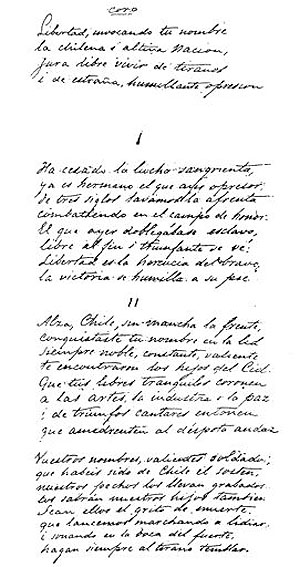 Coro
Libertad, invocando tu nombre
la chilena i altiva Nacion,
jura libre vivir de tiranos
i de estraña, humillante opresion
I
Ha cesado la lucha sangrienta,
ya es hermano el que ayer opresor,
de tres siglos lavamos la afrenta
combatiendo en el campo de honor.
El que ayer doblegábase esclavo,
libre al fin i triunfante se vé;
Libertad es la herencia del bravo,
la victoria se humilla a su pié.
II
Alza, Chile, sin mancha la frente,
conquistaste tu nombre en la lid
siempre noble, constante, valiente
te encontraron los hijos del Cid.
Que tus libres tranquilos coronen
a las artes, la industria i la paz
i de triunfos cantares entonen
que amedrenten al déspota audaz
Vuestros nombres, valientes soldados,
que habeis sido de Chile el sosten,
nuestros pechos los llevan grabados
los sabrán nuestros hijos tambien.
Sean ellos el grito de muerte
que lancemos marchando a lidiar,
i sonando en la boca del fuerte,
hagan siempre al tirano temblar.